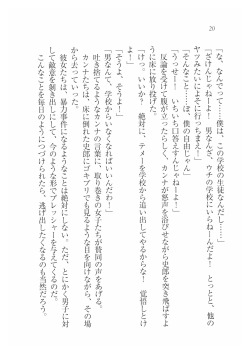 20
「な、なんでって……僕は、この学校の生徒なんだし……」
「ざけんじゃねー！　男なんざ、ウチの学校にいらねーんだよ！　とっとと、他の
ヤツみたいによそに行っちまえ！」
「そんなこと……ぼ、僕の自由じゃん」
「うっせー！　いちいち口答えすんじゃねーよ！」
反論を受けて腹が立ったらしく、カンナが怒声を浴びせながら史郎を突き飛ばすよ
うに床に放り投げた。
「けっ。いいか？　絶対に、テメーを学校から追い出してやるからな！　覚悟しとけ
よ！」
「そうよ、そうよ！」
「男なんて、学校からいなくなればいいんだわ！」
吐き捨てるようなカンナの言葉に、取り巻きの女子たちが賛同の声をあげる。
カンナたちは、床に倒れた史郎にゴキブリでも見るような目を向けながら、その場
から去っていった。
彼女たちは、暴力事件になるようなことは絶対にしない。ただ、とにかく男子に対
して敵意を剥き出しにして、今のような形でプレッシャーを与えてくるのだ。
こんなことを毎日のようにつづけられたら、逃げ出したくなるのも当然だろう。